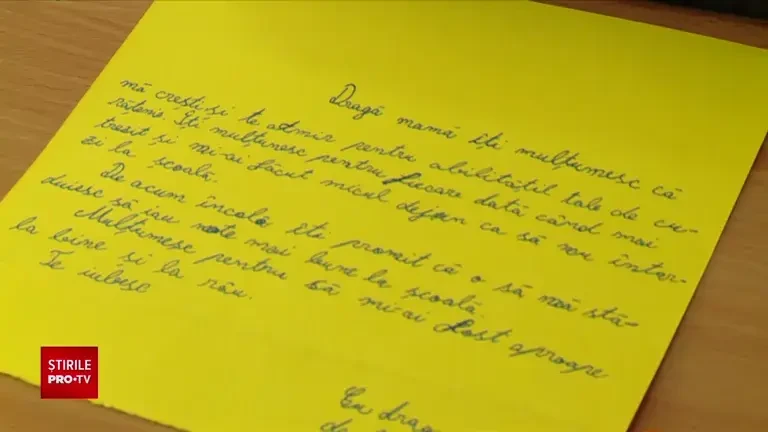 Dragă mamă îți mulțumesc că
mă crești și te admir pentru abilitățil tale de cu-
rățenie. Îți mulțumesc pentru fiecare dată când mai
tresit și mi-ai făcut micul dejun ca să nu întar-
zi la școală.
De acum încolo îți promit că o să mă stă-
duiesc să iau note mai bune la școală.
Mulțumesc pentru că mi-ai fost aproape
la bine și la rău.
Te iubesc
Cu drag
ȘTIRILE
PRO•TV